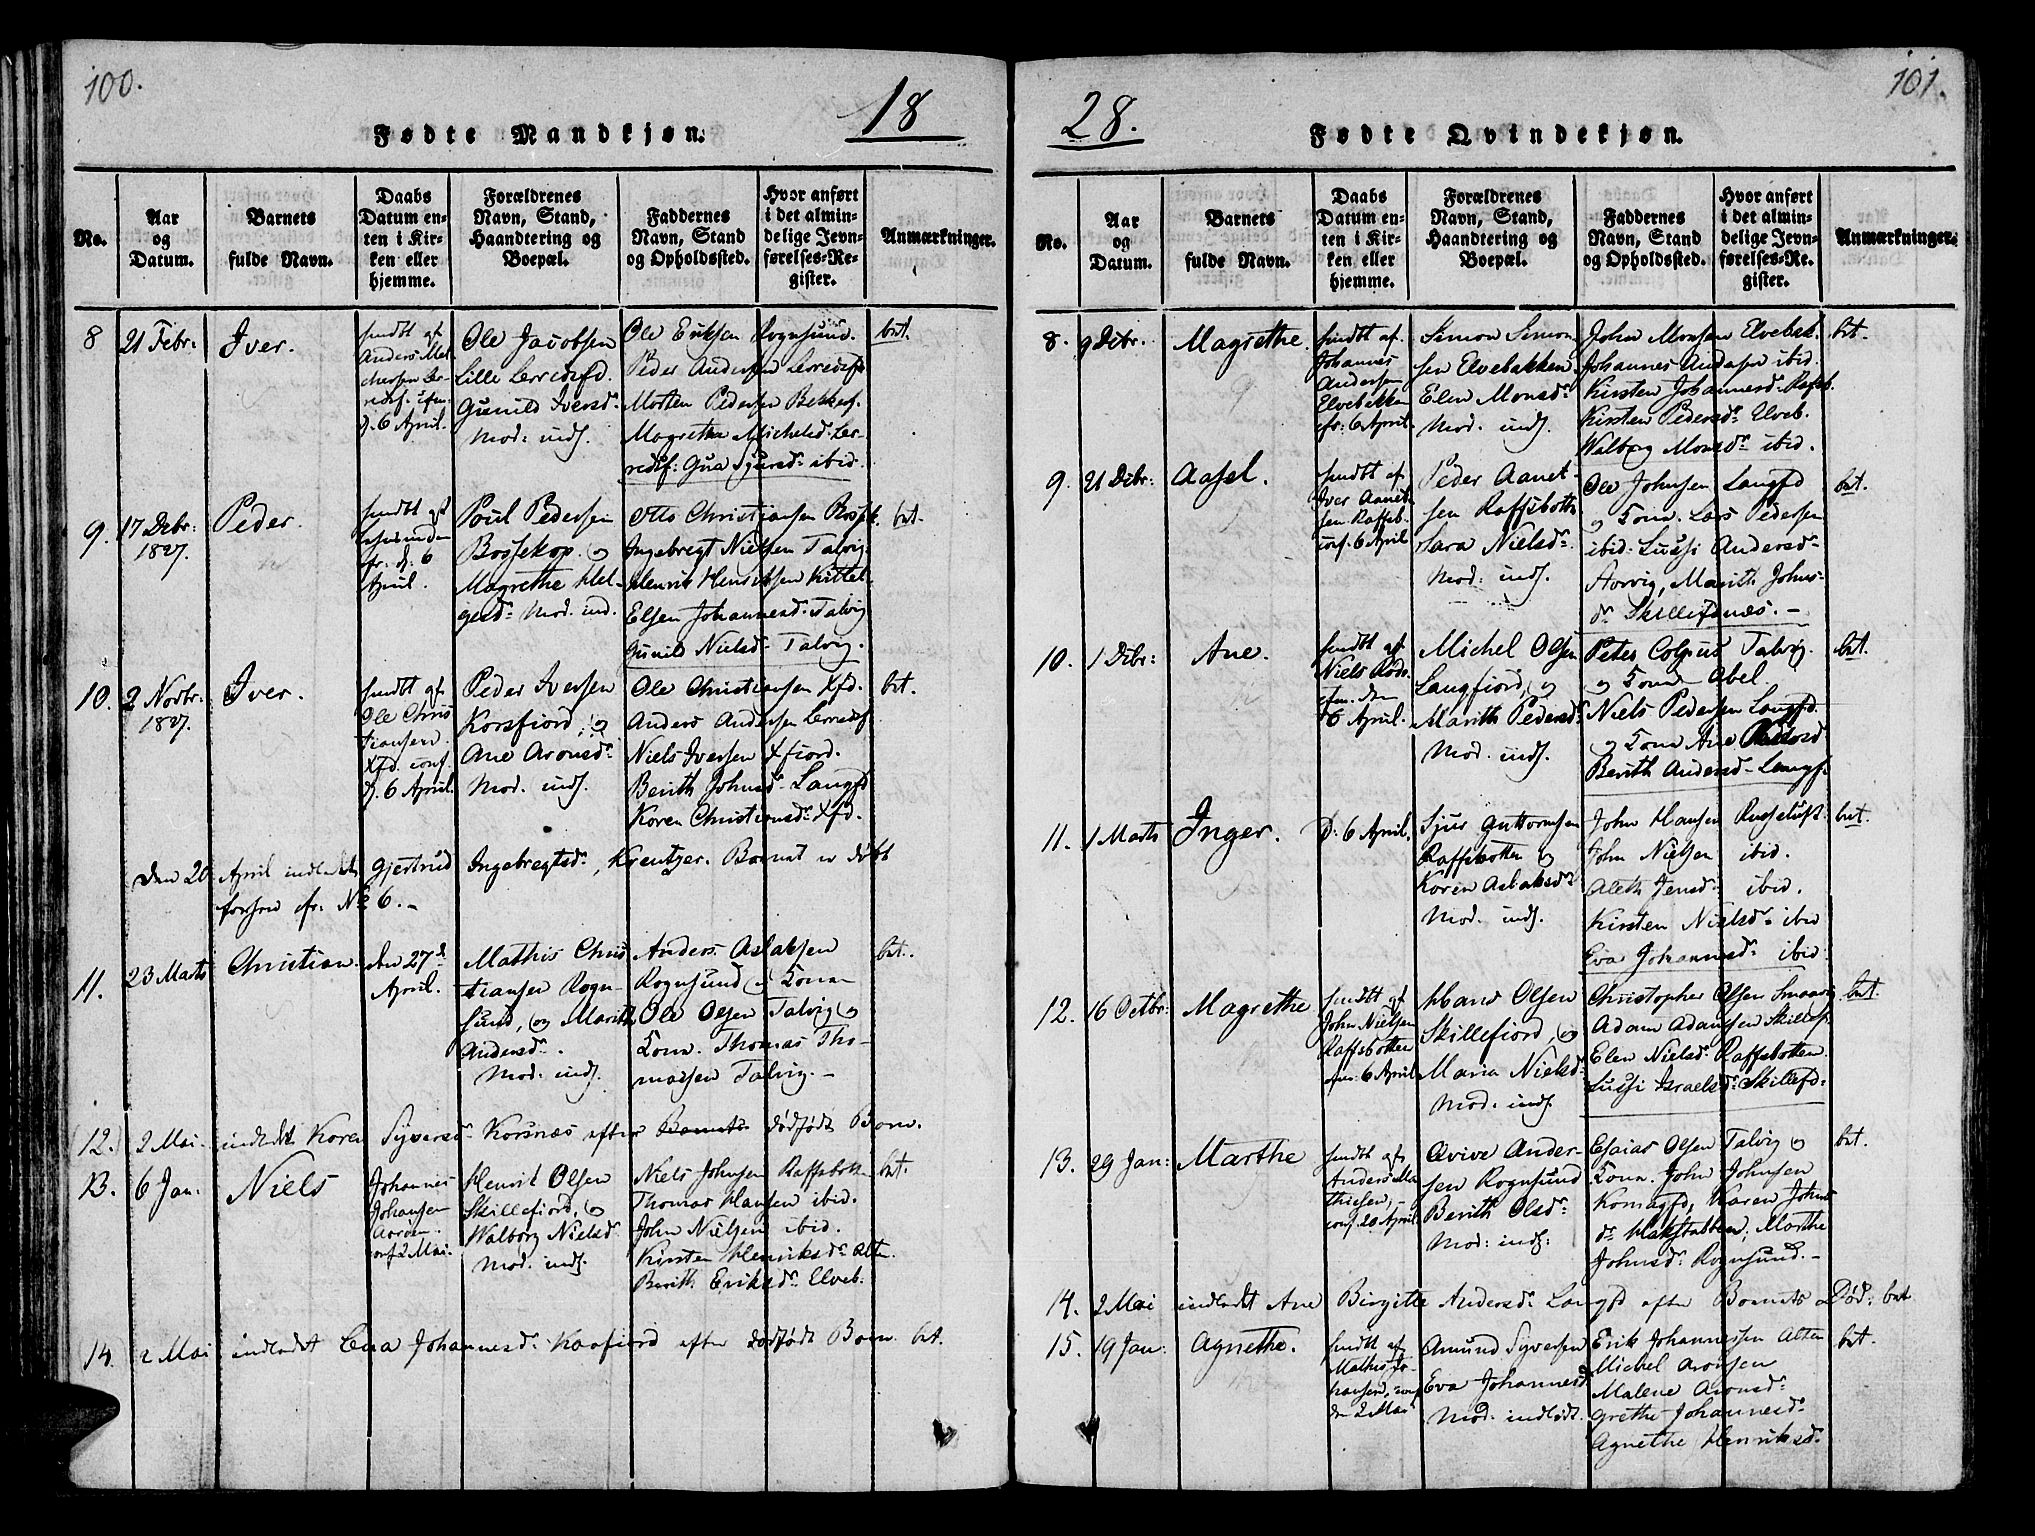 100.
18
Fødte Mandkjøn.
No.
Aar og Datum.
Barnets fulde Navn.
Daabs Datum enten i Kirken eller hjemme.
Forældrenes Navn, Stand, Haandtering og Boepæl.
Faddernes Navn, Stand og Opholdssted.
Hvor anført i det almindelige Jevnførelses-Register.
Anmærkninger.
8
21 Febr:
Iver.
Anders Mel-
d. 6 April.
Ole Jacobsen
Lille Lerredsfd.
Gunild Iversd.
Mod: indf.
Ole Eriksen Rognsund.
Peder Andersen Lerredsf
Morten Pedersen Bekkef.
Magrethe Michelsd. Ler-
redsf: Sjursd: ibid.
bnt.
9.
17 Decbr:
1827.
Peder.
fr. d. 6
April.
Poul Pedersen
Bossekop. og
Magrethe Hel-
gesd: Mod. ind.
Otto Christiansen Bossek.
Ingebregt Nielsen Talvig.
Elsen Johannesd. Talvig
Gunild Nielsd. Talvig.
bnt.
10.
2 Novbr:
1827.
Iver.
Ole Chris
tiansen
Xfd. conf.
d. 6 April.
Peder Iversen
Korsfiord, og
Ane Aronsd.
Mod. indf.
Ole Christiansen Xfd.
Anders Andersen Lerredsf
Niels Iversen Xfiord.
Berith Johnsd. Langfd
Koren Christiansd. Xfd.
bnt.
Den 20 April indledt Gjertrud Ingebregtsd., Kreutzer. Barnet er døbt
No 6.-
11.
23 Marts
Christian.
den 27d
April.
Mathis Chris
tiansen Rogn-
sund, og Marith
Andersd.
Mod. indf.
Anders Aslaksen
Rognsund og Kone
Ole Olsen Talvig og
Kone. Thomas Tho-
massen Talvig.-
bnt.
(12.)
2 Mai. indledt Koren Syversd. Korsnæs efter Barnets dødfødt Barn.
13.
6 Jan:
Niels
Johannes
Johansen
conf 2 Mai.
Henrik Olsen
Skillefiord, og
Walborg Nielsd.
Mod. indf.
Niels Johnsen Raffsbotn
Thomas Hansen ibid.
John Nielsen ibid.
Kirsten Henriksd. Alten.
Berith Eriksd. Elveb.
bnt.
14.
2 Mai indledt Eva Johannesd. Kaafiord efter dødfødt Barn. bnt.
101.
28.
Fødte Qvindekjøn.
No.
Aar og Datum.
Barnets fulde Navn.
Daabs Datum enten i Kirken eller hjemme.
Forældrenes Navn, Stand, Haandtering og Boepæl.
Faddernes Navn, Stand og Opholdssted.
Hvor anført i det almindelige Jevnførelses-Register.
Anmærkninger.
8.
9 Decbr.
Magrethe.
Johannes
Andersen
Elvebakken
6 April
Simon Simon
sen Elvebakken.
Elen Monsd.
Mod. indf.
John Monsen Elvebak.
Johannes Andersen ibid.
Kirsten Johannesd. Rafsb.
Kirsten Pedersd. Elveb.
Walborg Monsd. ibid.
bnt.
9.
21 Decbr:
Aasel.
Iver Aanet
sen Raffsb.
conf. 6 April
Peder Aanet-
sen Raffsbotn
Sara Nielsd.
Mod: indf.
Ole Johnsen Langfd
og Kone. Lars Pedersen
ibid. Lussi Andersd.
Storvig, Marith Johns-
d. Skillefnæs.-
bnt.
10.
1 Decbr:
Ane.
Niels
6 April.
Michel Olsen
Langfiord, og
Marith Pedersd.
Mod. indf.
Peter Talvig.
og Kone Abel.
Niels Pedersen Langfd.
og Kone Ane
Berith Andersd. Langf.
bnt.
11.
1 Marts
Inger.
D: 6 April.
Sjur Guttormsen
Raffsbotten og
Koren Aslaksd.
Mod. indf.
John Hansen Russeluft.
John Nielsen ibid.
Aleth Jensd. ibid.
Kirsten Nielsd. ibid
Eva Johannesd. ibid.
bnt.
12.
16 Octbr:
Magrethe
John Nielsen
Raffsbotten
6 April
Hans Olsen
Skillefiord, og
Maria Nielsd.
Mod. indf.
Christopher Olsen
Adam Adamsen Skillef.
Elen Nielsd. Raffsbotten.
Lussi Israelsd. Skillefd:
bnt.
13.
29 Jan:
Marthe
Anders Ma
thisen,
conf. 20 April.
Avive Ander-
sen Rognsund
Berith Olsd.
Mod: indf:
Esaias Olsen Talvig og
Kone. John Johnsen
Komagfd, Karen Johns
d. Hakstabben, Marthe
Johnsd: Rognsund.-
bnt.
14.
2 Mai indledt Ane Birgitte Andersd. Langfd efter Barnets Død: bnt
15.
19 Jan:
Agnethe.
Mathis Jo-
hansen, conf
den 2 Mai
Amund Syversen
Eva Johannesd.
Mod: indledt.
Erik Johannessen Alten
Michel Aronsen
Malene Aronsd:
Grethe Johannesd.
Agnethe Henriksd.
bnt.